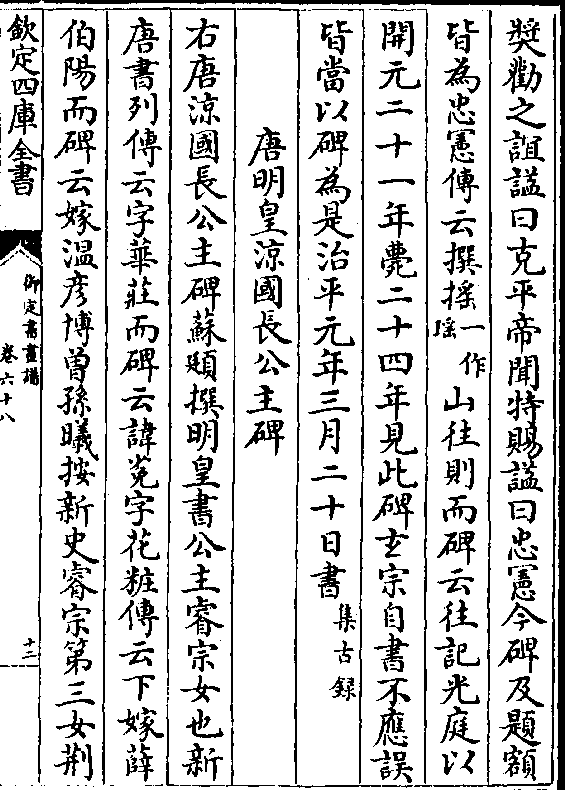 奨勸之誼諡曰克平帝聞特賜諡曰忠憲今碑及題額
皆為忠憲傳云撰搖一作瑶山往則而碑云往記光庭以
開元二十一年薨二十四年見此碑玄宗自書不應誤
皆當以碑為是治平元年三月二十日書集古録
唐明皇涼國長公主碑
右唐涼國長公主碑蘇頲撰明皇書公主睿宗女也新
唐書列傳云字華莊而碑云諱㝹字花粧傳云下嫁薛
伯陽而碑云嫁温彦博曽孫曦按新史睿宗第三女荆
欽定四庫全書
御定書畫譜
卷六十八
十二